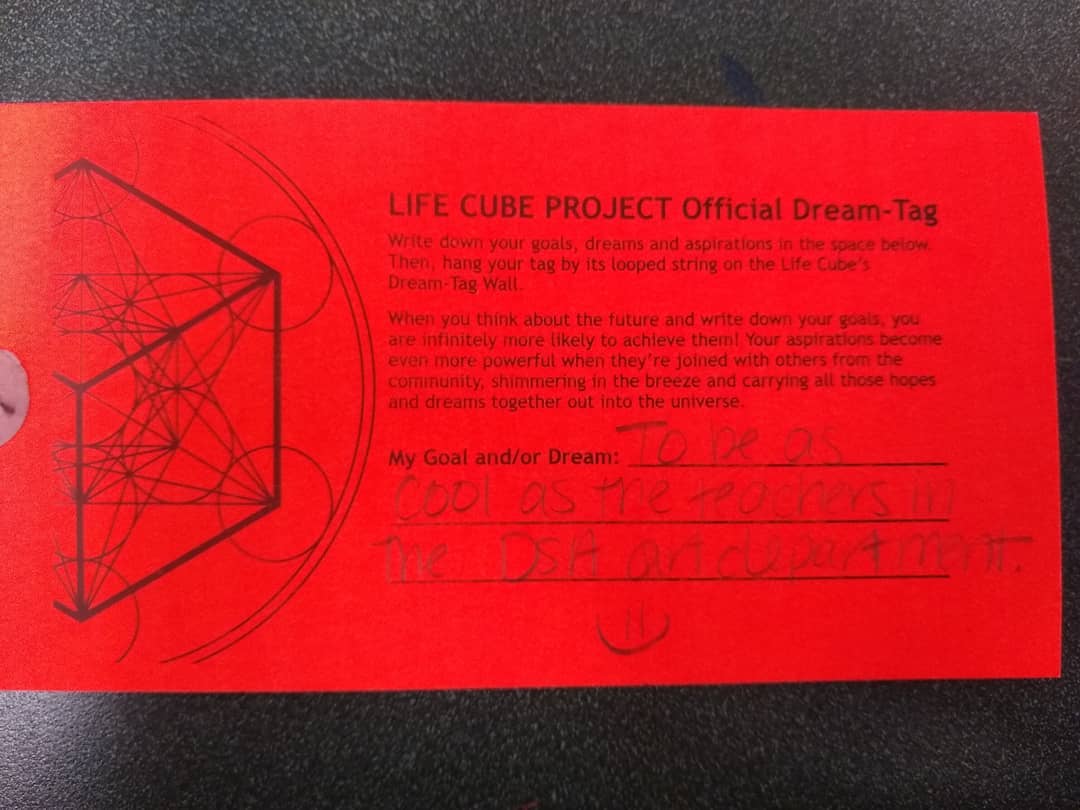 LIFE CUBE PROJECT Official Dream-Tag
Write down your goals, dreams and aspirations in the space below.
Then, hang your tag by its looped string on the Life Cube's
Dream-Tag Wall.
When you think about the future and write down your goals, you
are infinitely more likely to achieve them! Your aspirations become
even more powerful when they're joined with others from the
community, shimmering in the breeze and carrying all those hopes
and dreams together out into the universe.
My Goal and/or Dream: To be as
cool as the teachers in
the DSA art department.